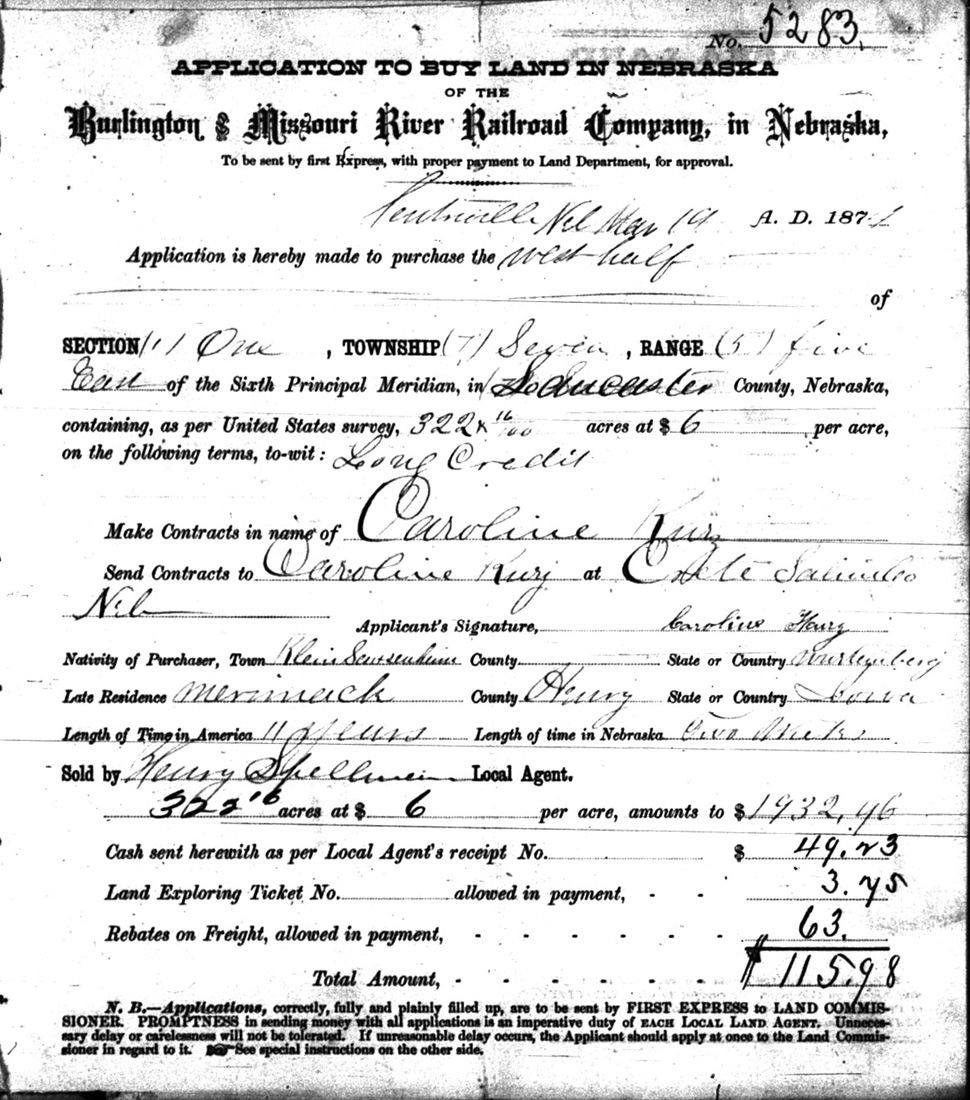 No. 5283.
APPLICATION TO BUY LAND IN NEBRASKA
OF THE
Burlington & Missouri River Railroad Company, in Nebraska,
To be sent by first Express, with proper payment to Land Department, for approval.
Neb Mar 19 A. D. 187
Application is hereby made to purchase the west half
of
SECTION (1) One , TOWNSHIP (7) Seven , RANGE (5) five
East of the Sixth Principal Meridian, in Lancaster County, Nebraska,
containing, as per United States survey, 322 16/100 acres at $ 6 per acre,
on the following terms, to-wit : Long Credit
Make Contracts in name of Caroline Kurz
Send Contracts to Caroline Kurz at Crete Saline Co
Neb
Applicant's Signature, Caroline
Nativity of Purchaser, Town Klein County State or Country Wurtemberg
Late Residence Merimack County Henry State or Country Iowa
Length of Time in America 11 years Length of time in Nebraska Two
Sold by Henry Spellman Local Agent.
322 16 acres at $ 6 per acre, amounts to $ 1932.96
Cash sent herewith as per Local Agent's receipt No. $ 49.23
Land Exploring Ticket No. allowed in payment, - - 3.75
Rebates on Freight, allowed in payment, - - - - - - 63.
Total Amount, - - - - - - $ 115.98
N. B.—Applications, correctly, fully and plainly filled up, are to be sent by FIRST EXPRESS to LAND COMMIS-
SIONER. PROMPTNESS in sending money with all applications is an imperative duty of EACH LOCAL LAND AGENT. Unneces-
sary delay or carelessness will not be tolerated. If unreasonable delay occurs, the Applicant should apply at once to the Land Commis-
sioner in regard to it. ☞See special instructions on the other side.